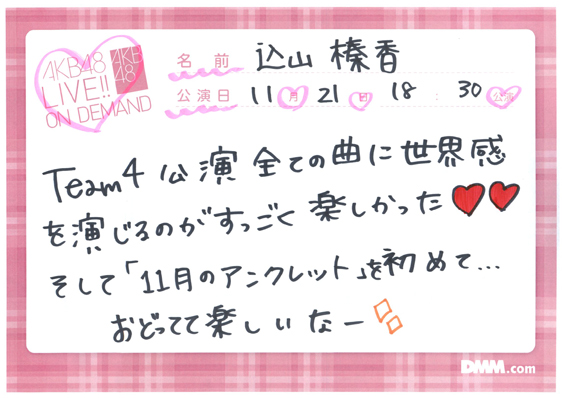 AKB48
LIVE!!
ON DEMAND
AKB
48
名前 込山榛香
公演日 11月21日 18:30公演
Team4 公演 全ての曲に世界感
を演じるのがすっごく楽しかった❤❤
そして「11月のアンクレット」を初めて...
おどってて楽しいなー
DMM.com